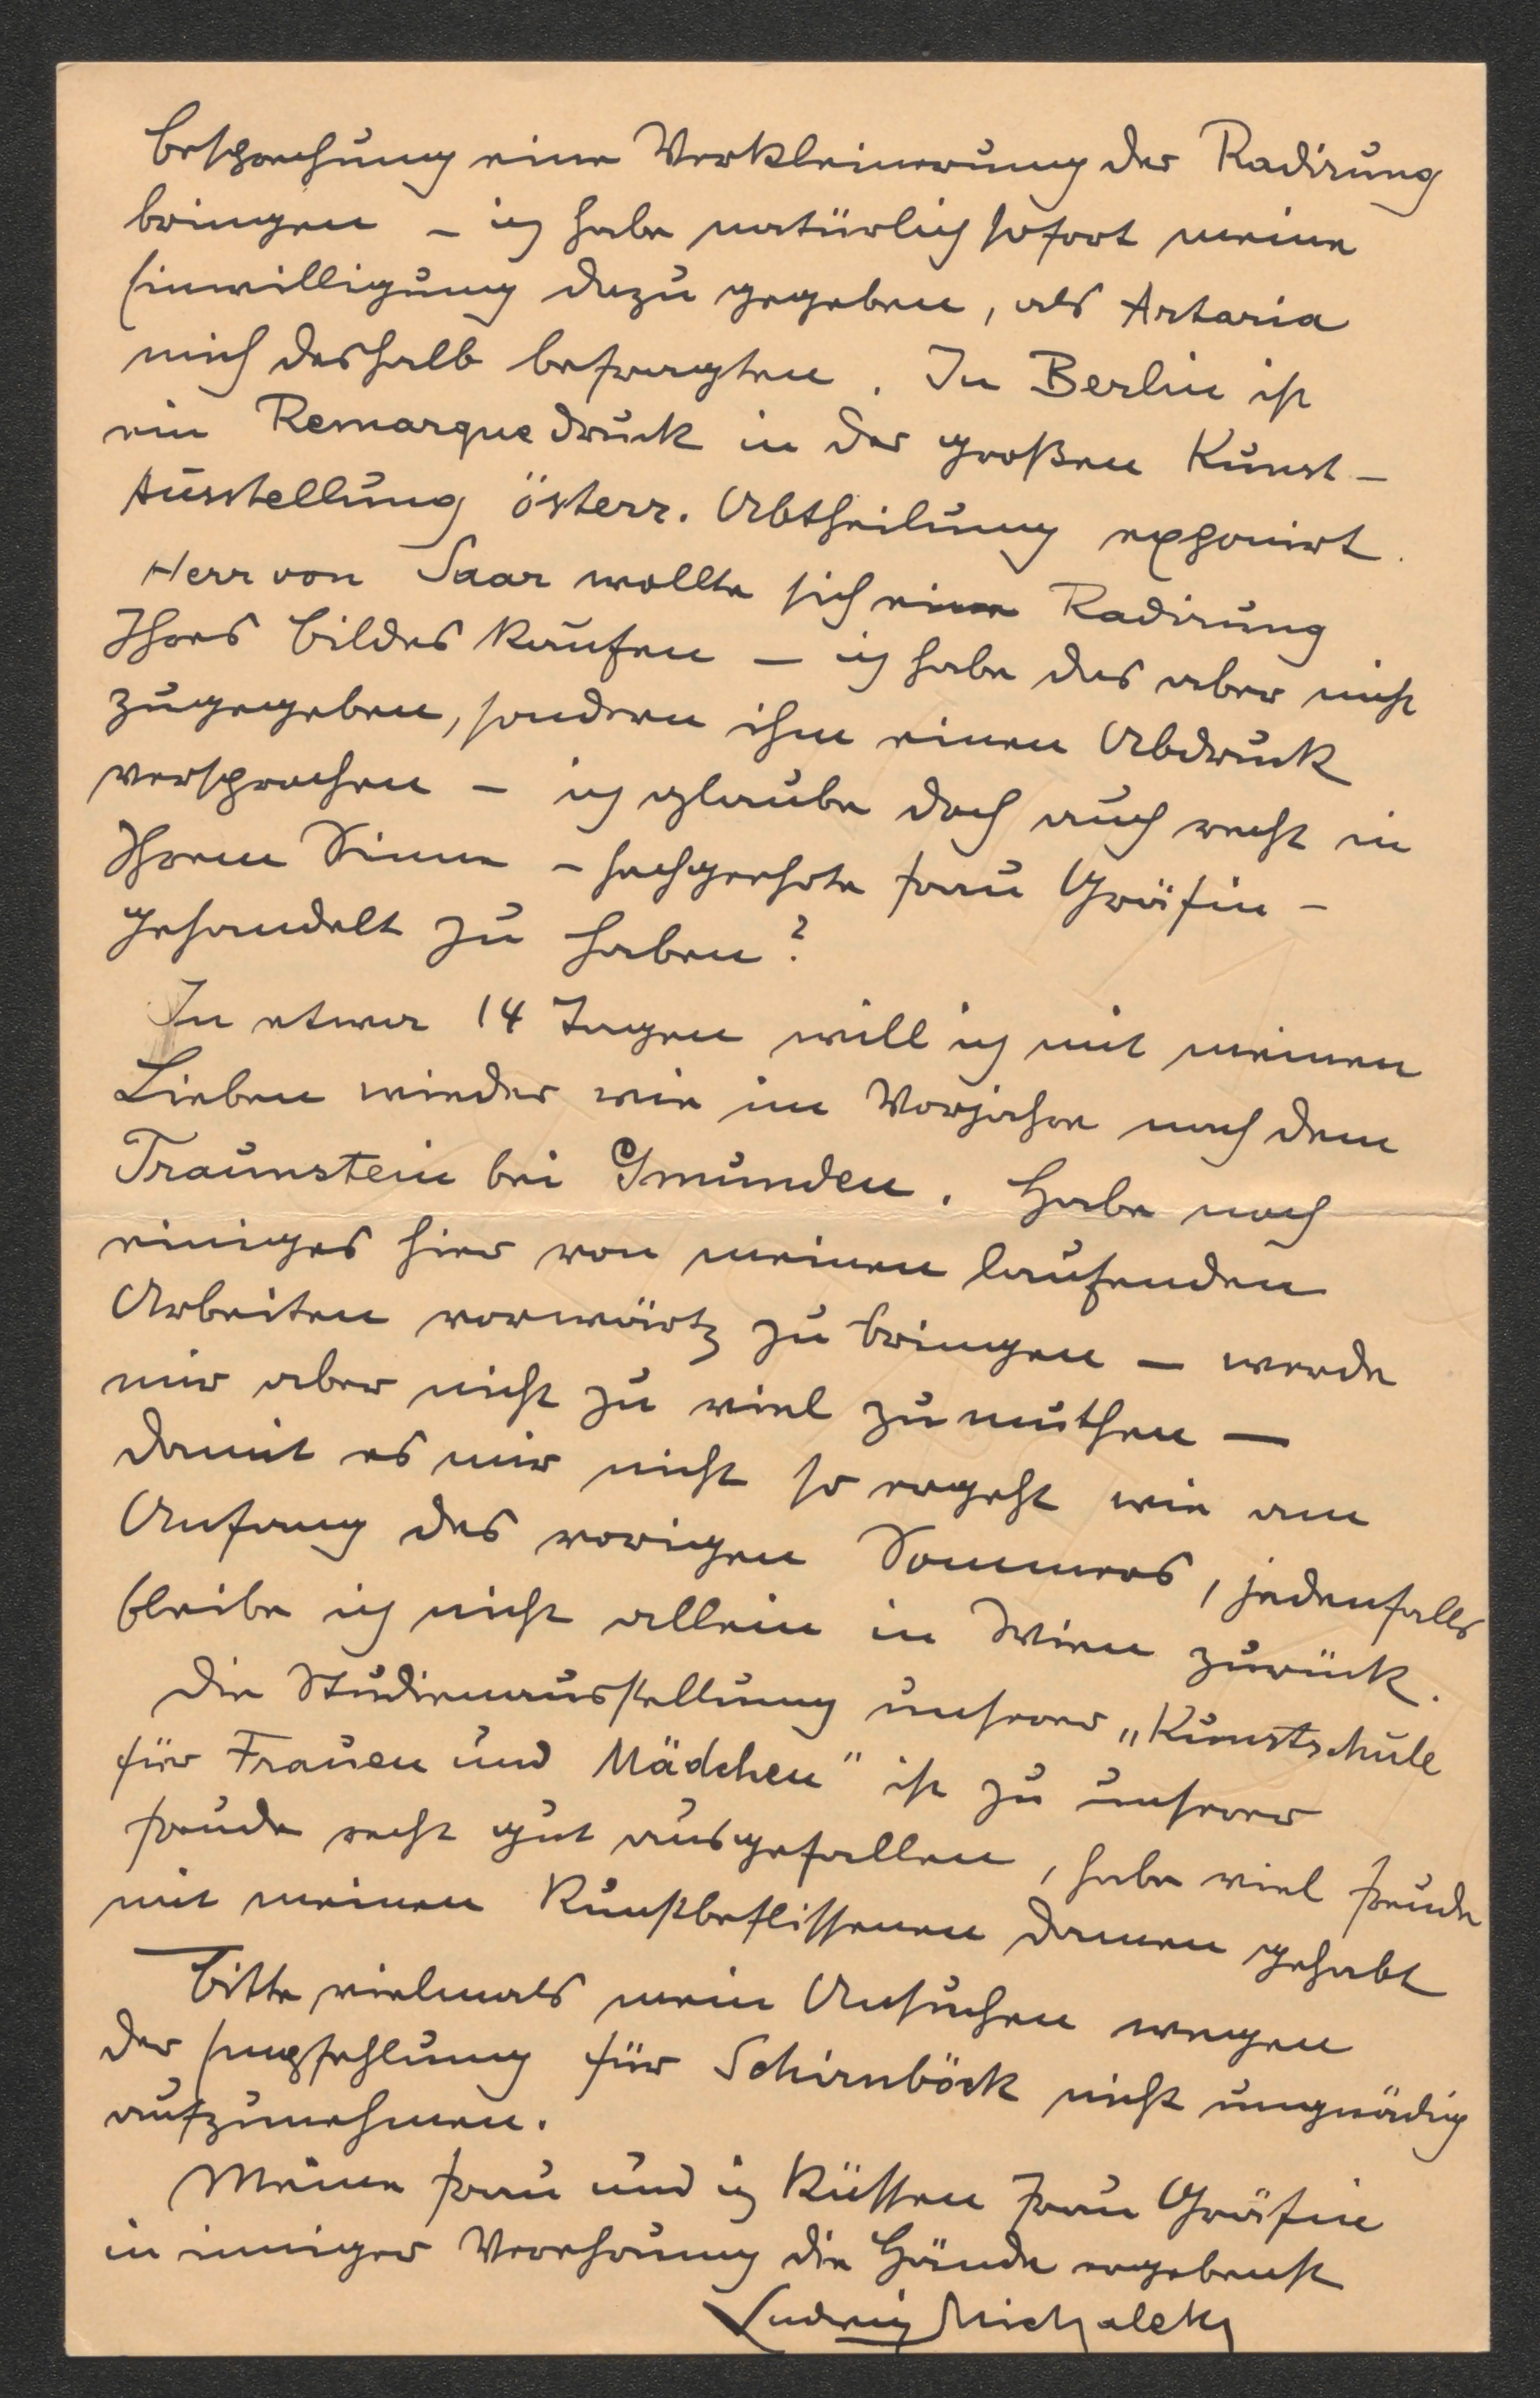 Besprechung eine Verkleinerung der Radirung
bringen – ich habe natürlich sofort meine
Einwilligung dazu gegeben, als Artaria
mich deshalb befragten. In Berlin ist
ein Remarquedruck in der großen Kunst-
Ausstellung österr. Abtheilung exponirt.
Herr von Saar wollte sich eine Radirung
Ihres Bildes kaufen – ich habe das aber nicht
zugegeben, sondern ihm einen Abdruck
versprochen – ich glaube doch auch recht in
Ihrem Sinne – hochgeehrte Frau Gräfin –
gehandelt zu haben?
In etwa 14 Tagen will ich mit meinen
Lieben wieder wie im Vorjahre nach dem
Traunstein bei Gmunden. Habe noch
einiges hier von meinen laufenden
Arbeiten vorwärtz zu bringen – werde
mir aber nicht zu viel zumuthen –
damit es mir nicht so ergeht wie am
Anfang des vorigen Sommers, jedenfalls
bleibe ich nicht allein in Wien zurück.
Die Studienausstellung unserer „Kunstschule
für Frauen und Mädchen" ist zu unserer
Freude recht gut ausgefallen, habe viel Freude
mit meinen Kunstbeflissenen Damen gehabt
Bitte vielmals mein Ansuchen wegen
der Empfehlung für Schirnböck nicht ungnädig
aufzunehmen.
Meine Frau und ich küssen Frau Gräfin
in inniger Verehrung die Hände ergebenst
Ludwig Michalek